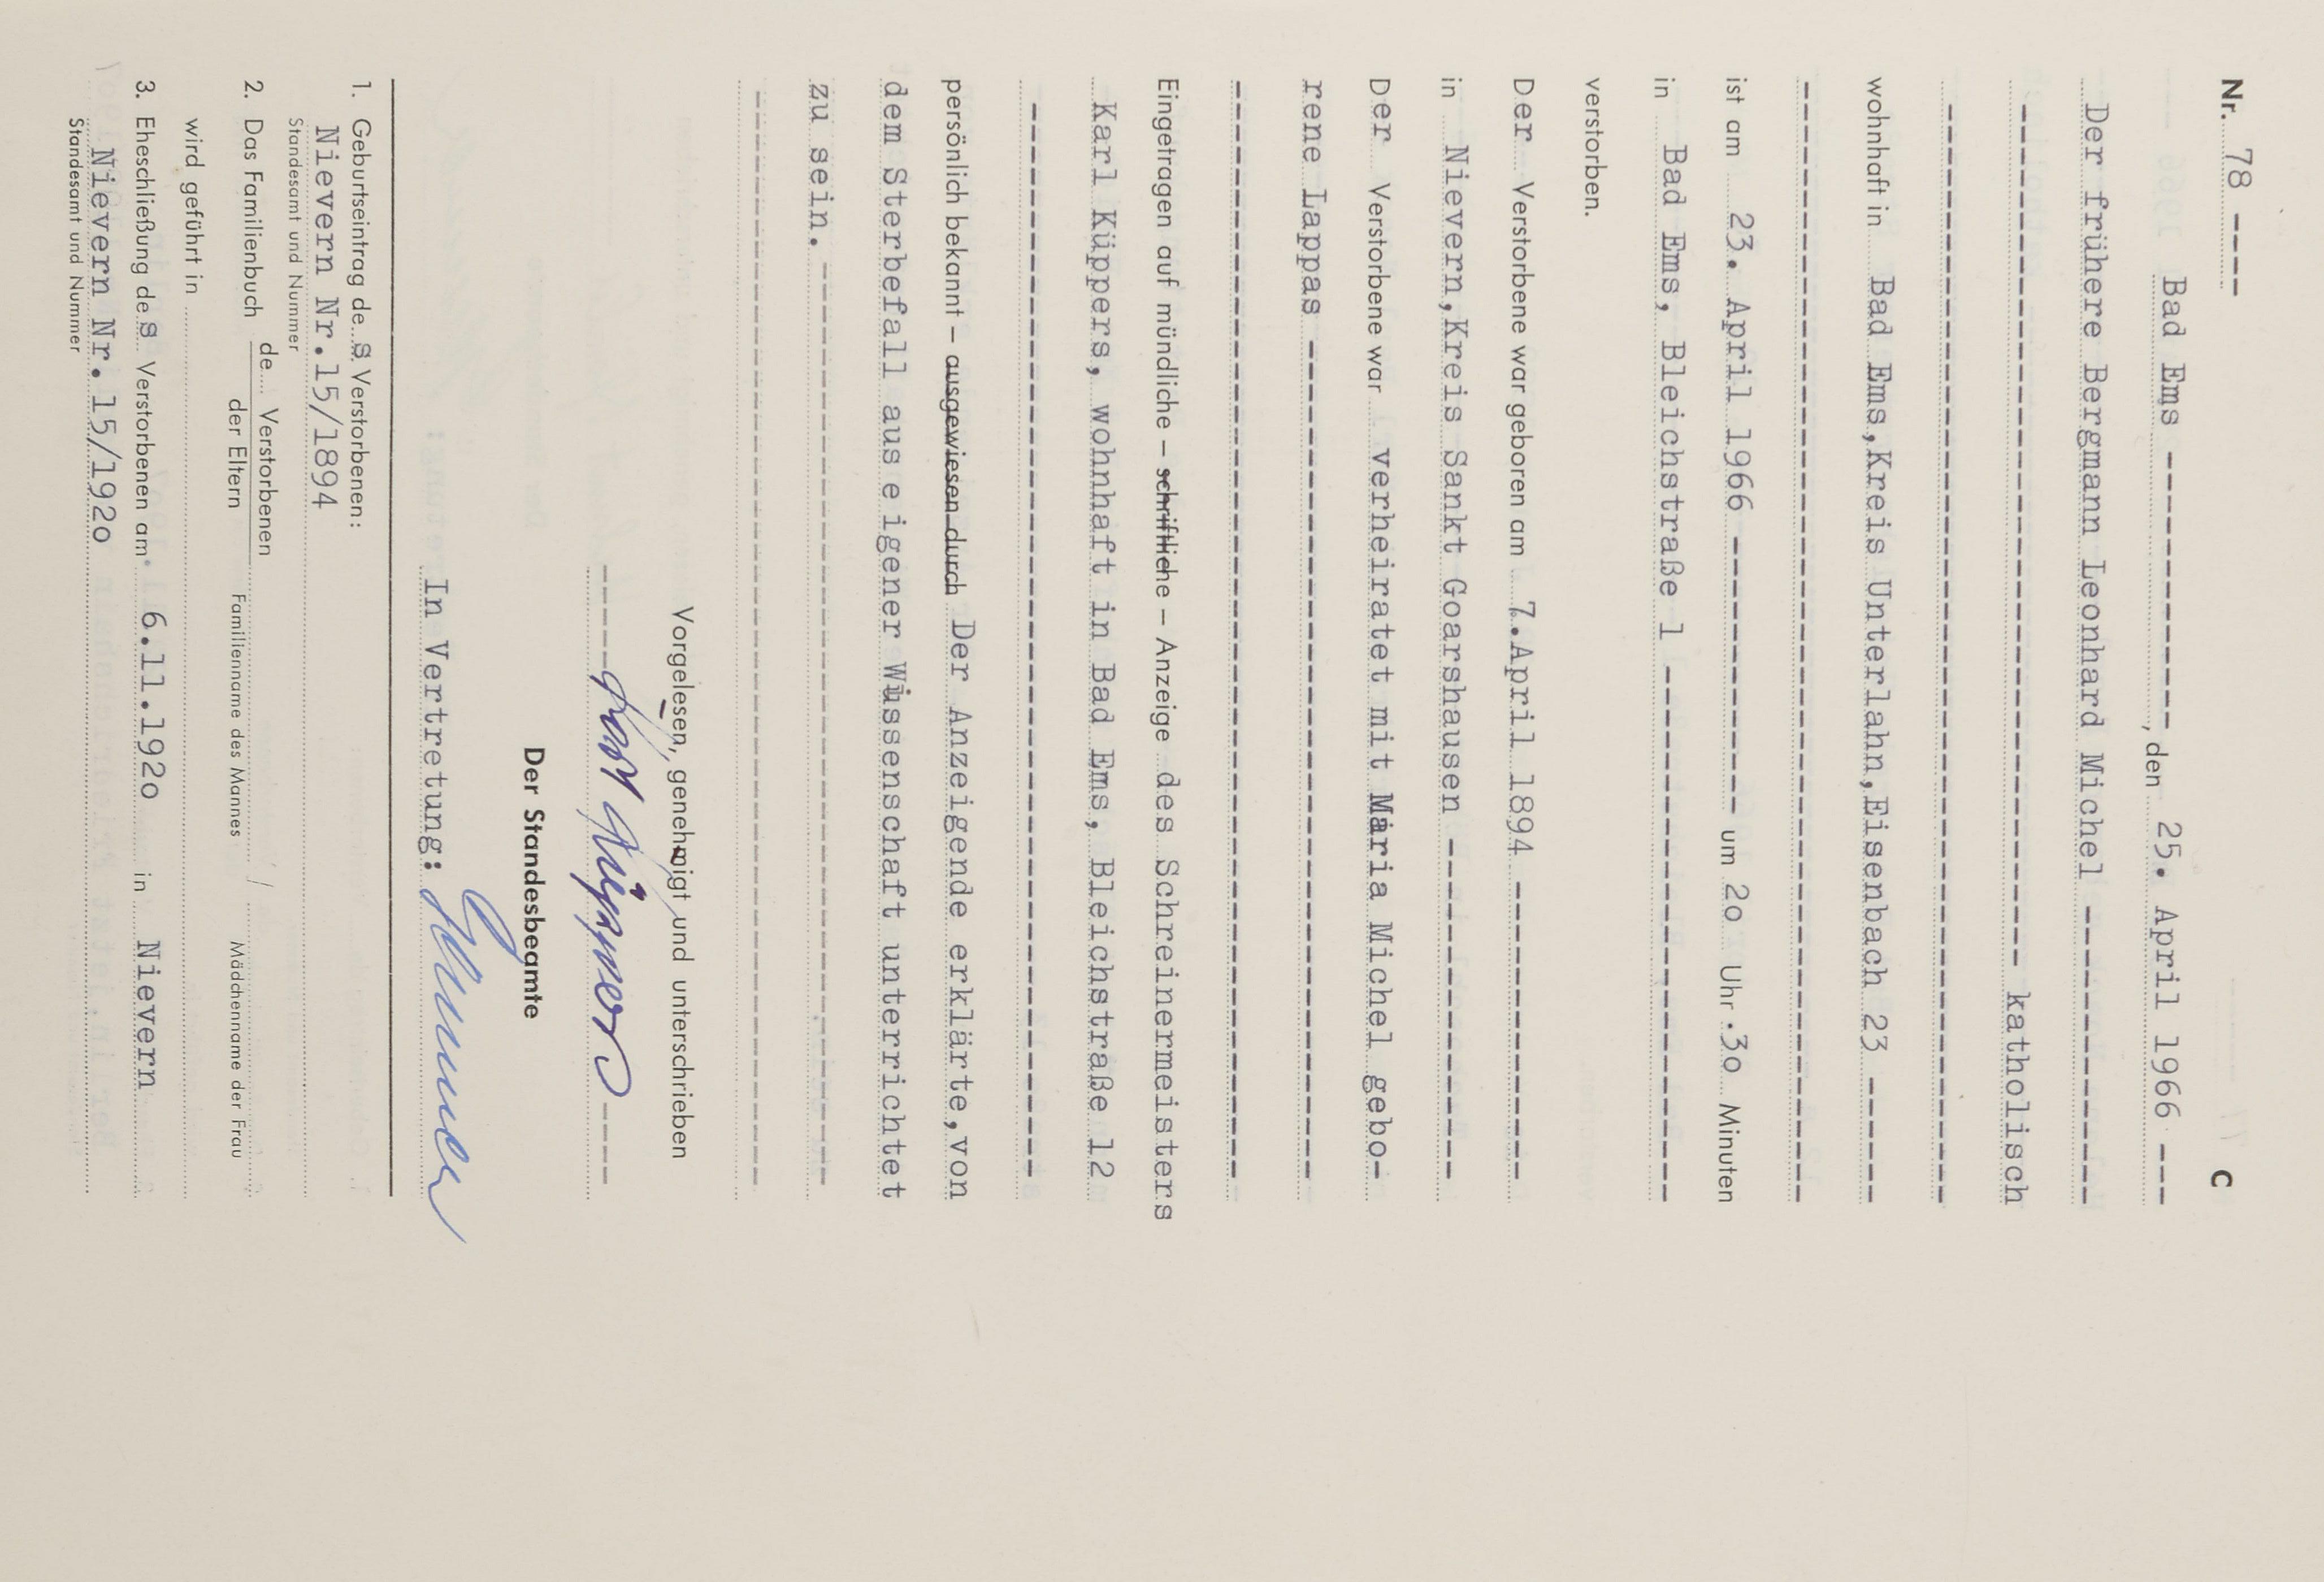 Nr. 78 ---- C
Bad Ems ------------, den 25. April 1966 ---
Der frühere Bergmann Leonhard Michel -------------
------------------------------------- katholisch
------------------------------------------------
wohnhaft in Bad Ems,Kreis Unterlahn,Eisenbach 23 ------
------------------------------------------------
ist am 23. April 1966 ------------ um 2o Uhr 3o Minuten
in Bad Ems, Bleichstraße 1 -----------------------
verstorben.
Der Verstorbene war geboren am 7.April 1894 -------------
in Nievern,Kreis Sankt Goarshausen ---------------
Der Verstorbene war verheiratet mit Maria Michel gebo-
rene Lappas -------------------------------------
------------------------------------------------
Eingetragen auf mündliche – schriftliche – Anzeige des Schreinermeisters
Karl Küppers, wohnhaft in Bad Ems, Bleichstraße 12
------------------------------------------------
persönlich bekannt – ausgewiesen durch Der Anzeigende erklärte,von
dem Sterbefall aus e igener Wissenschaft unterrichtet
zu sein. ----------------------------------------
------------------------------------------------
Vorgelesen, genehmigt und unterschrieben
---- Karl Küppers ----
Der Standesbeamte
In Vertretung:
1. Geburtseintrag des Verstorbenen:
Nievern Nr.15/1894
Standesamt und Nummer
2. Das Familienbuch de Verstorbenen
der Eltern Familienname des Mannes / Mädchenname der Frau
wird geführt in
3. Eheschließung des Verstorbenen am 6.11.192o in Nievern
Nievern Nr. 15/192o
Standesamt und Nummer